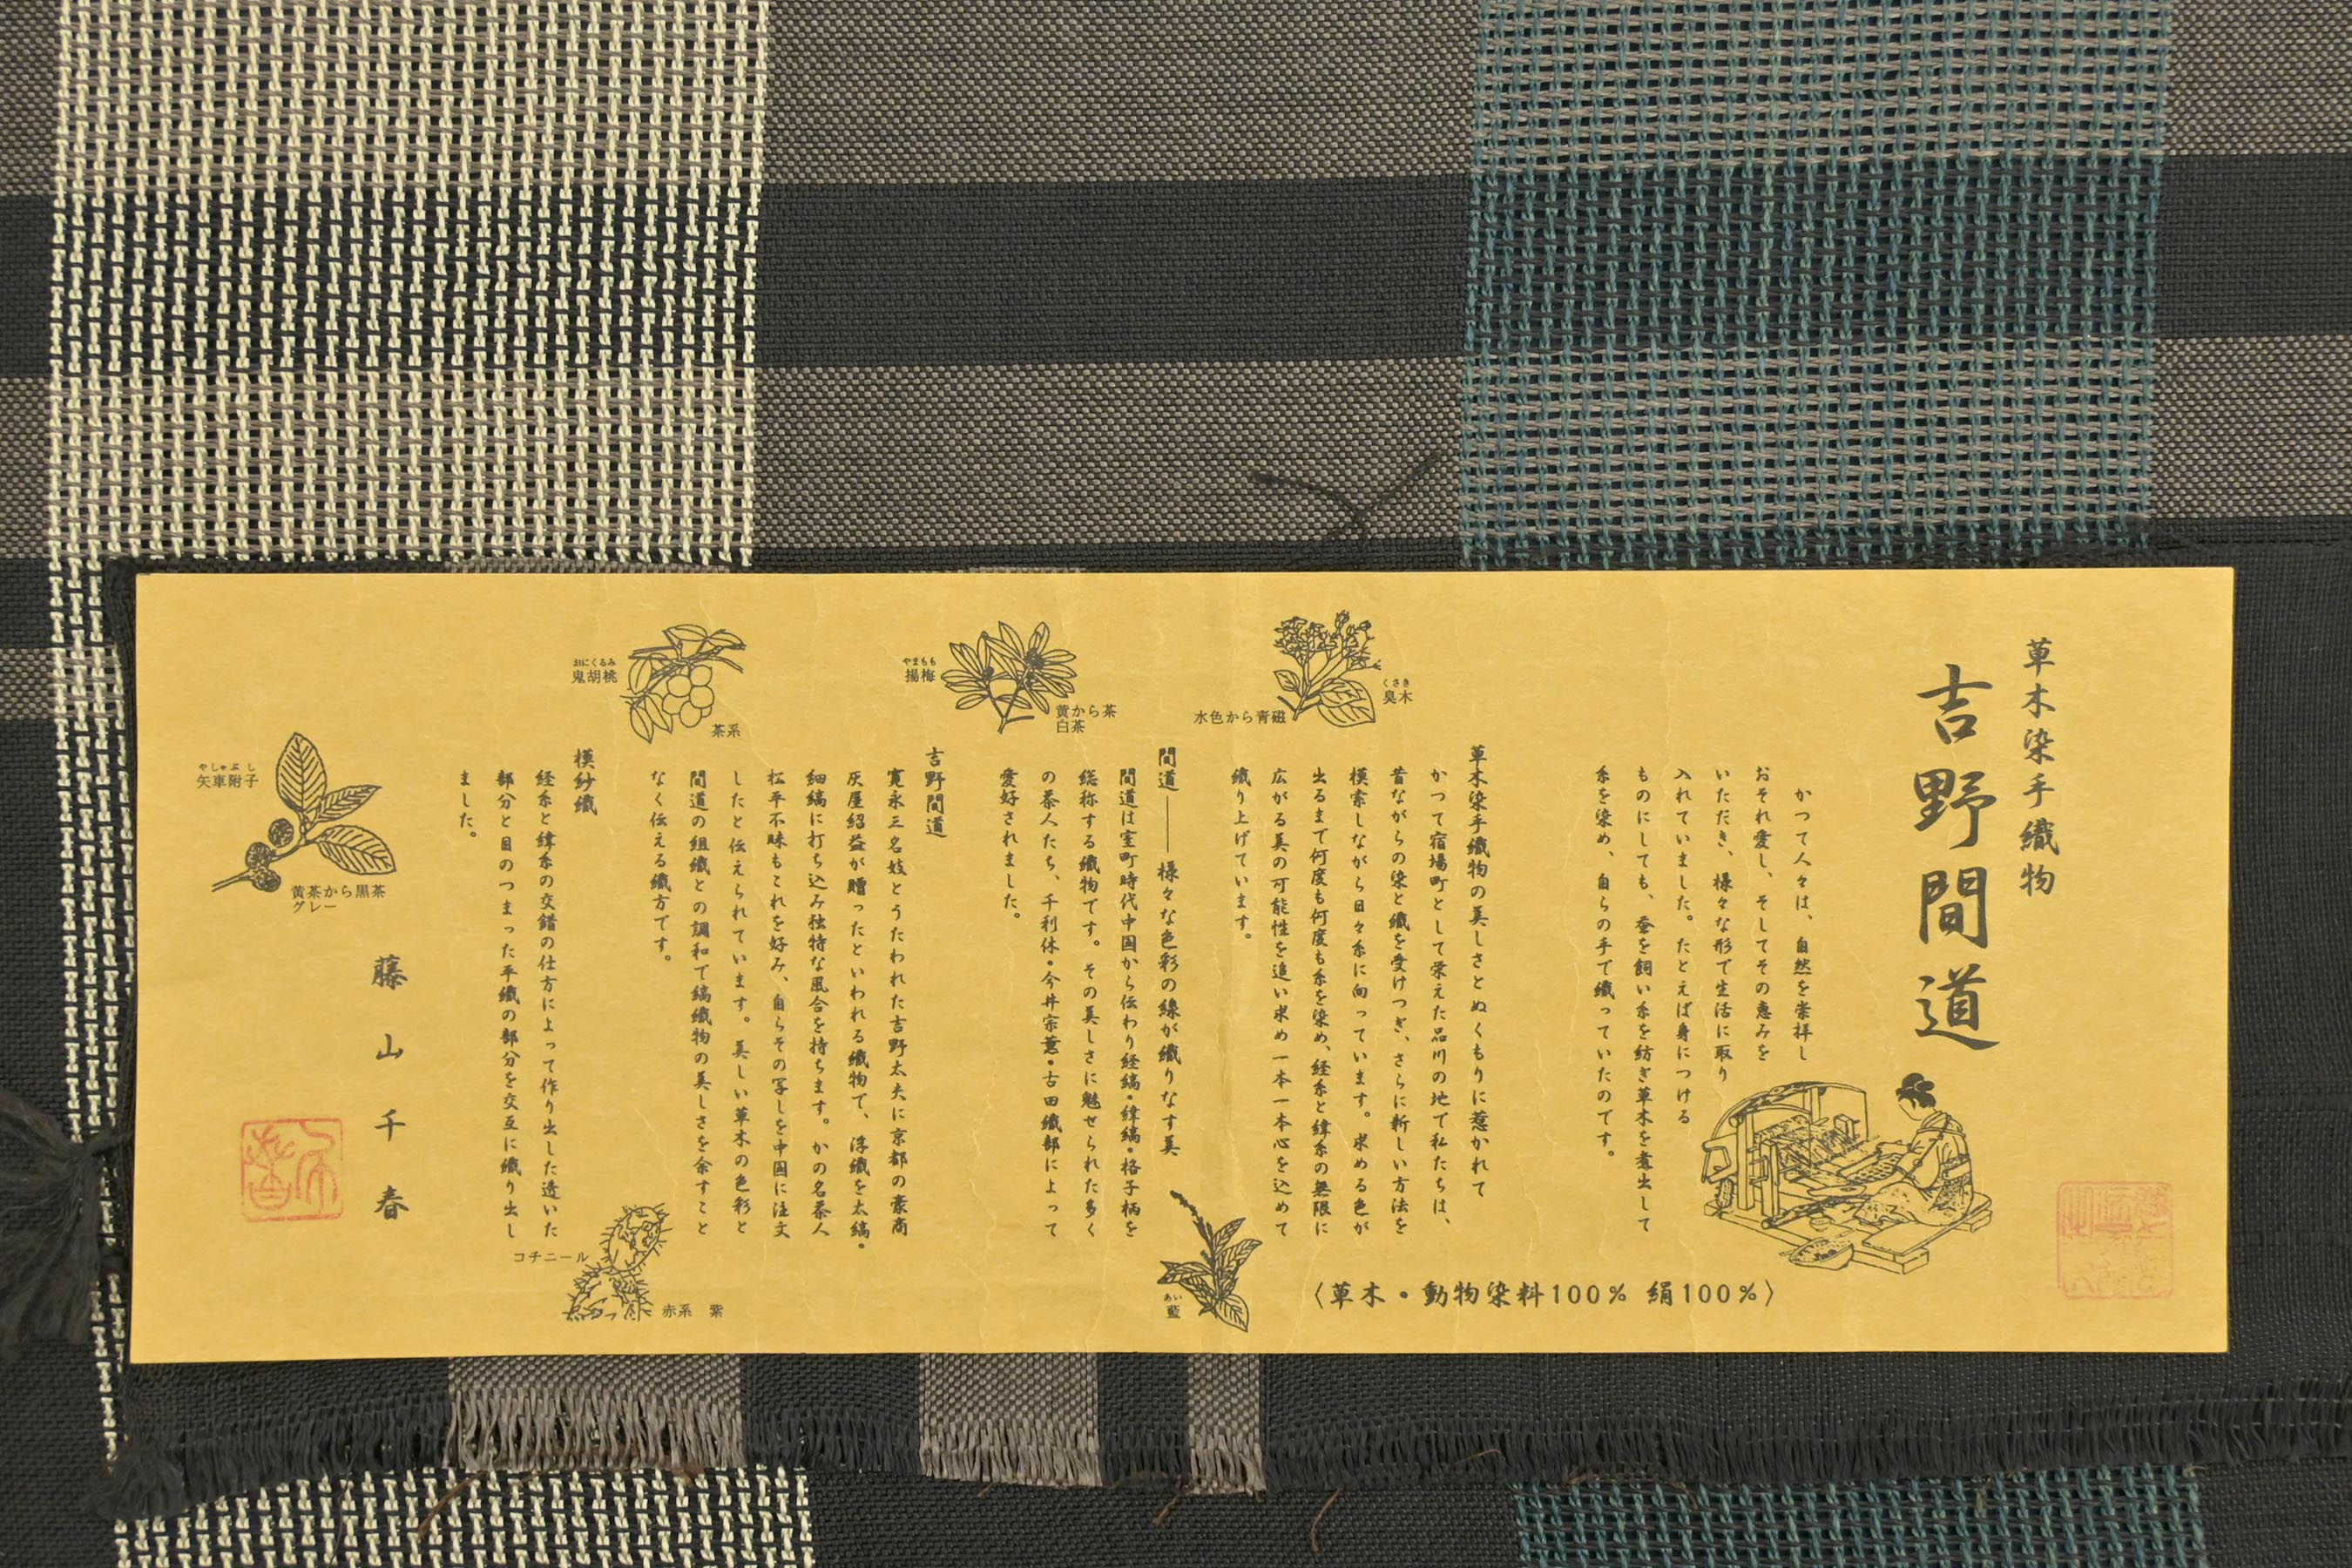 草木染手織物
吉野間道
かつて人々は、自然を崇拝し
おそれ愛し、そしてその恵みを
いただき、様々な形で生活に取り
入れていました。たとえば身につける
ものにしても、蚕を飼い糸を紡ぎ草木を煮出して
糸を染め、自らの手で織っていたのです。
草木染手織物の美しさとぬくもりに惹かれて
かつて宿場町として栄えた品川の地で私たちは、
昔ながらの染と織を受けつぎ、さらに新しい方法を
模索しながら日々糸に向っています。求める色が
出るまで何度も何度も糸を染め、経糸と緯糸の無限に
広がる美の可能性を追い求め一本一本心を込めて
織り上げています。
間道――様々な色彩の線が織りなす美
間道は室町時代中国から伝わり経縞・緯縞・格子柄を
総称する織物です。その美しさに魅せられた多く
の茶人たち、千利休・今井宗薫・古田織部によって
愛好されました。
吉野間道
寛永三名妓とうたわれた吉野太夫に京都の豪商
灰屋紹益が贈ったといわれる織物で、浮織を太縞・
細縞に打ち込み独特な風合を持ちます。かの名茶人
松平不昧もこれを好み、自らその写しを中国に注文
したと伝えられています。美しい草木の色彩と
間道の組織との調和で縞織物の美しさを余すこと
なく伝える織方です。
模紗織
経糸と緯糸の交錯の仕方によって作り出した透いた
部分と目のつまった平織の部分を交互に織り出し
ました。
藤山千春
〈草木・動物染料100% 絹100%〉
くさき
臭木
水色から青磁
やまもも
揚梅
黄から茶
白茶
おにくるみ
鬼胡桃
茶系
やしゃぶし
矢車附子
黄茶から黒茶
グレー
あい
藍
コチニール
赤系 紫